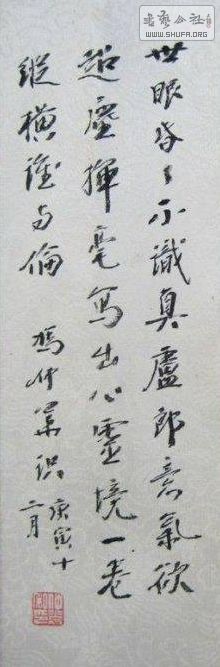 世眼昏々不識真盧郎意氣欲
超塵揮毫寫出心靈境一卷
縱横誰与倫
馮其庸題
庚寅十
二月
书艺公社
WWW.SHUFA.ORG